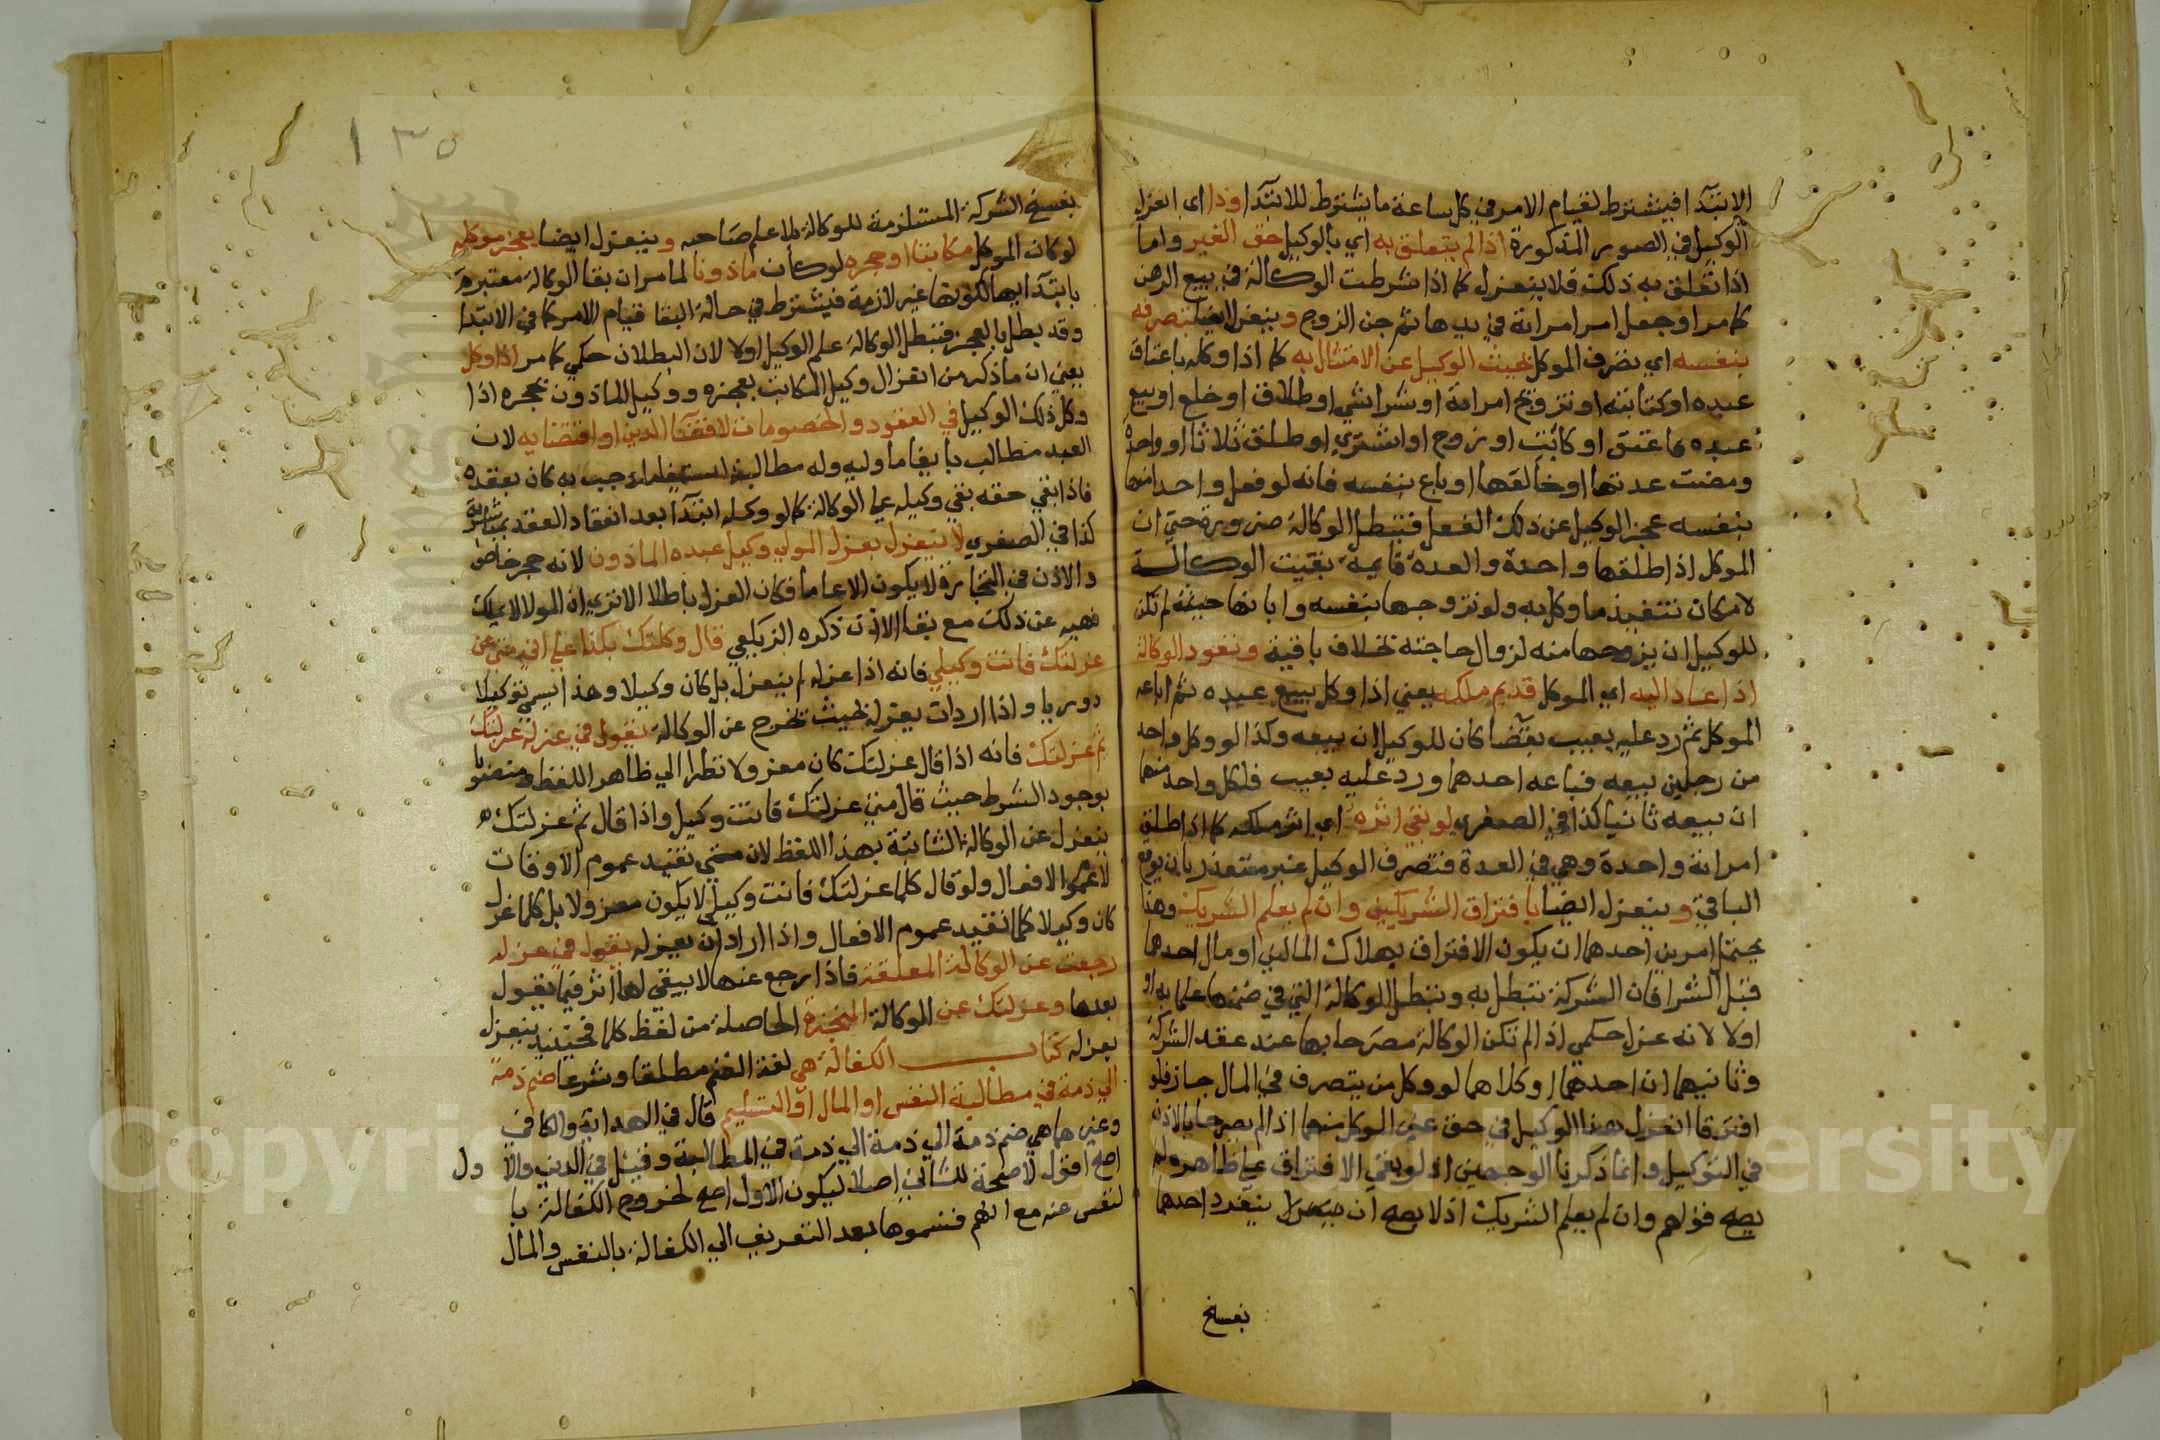 الابتدا فيشترط لقيام الامر في كل ساعة ما يشترط للابتدا وذا اى انعزل
الوكيل في الصور المذكورة اذا لم يتعلق به اي بالوكيل حق الغير واما
اذا تعلق به ذلك فلا ينعزل كما اذا شرطت الوكالة في بيع الرهن
كما مر او جعل امر امراته في يدها ثم جن الزوج وينعزل ايضا بتصرفه
بنفسه اي تصرف الموكل بحيث الوكيل عن الامتثال به كما اذا وكله باعتاق
عبده او كتابته او تزويج امراة او شرا شي او طلاق او خلع او بيع
عبده فاعتق او كاتب او زوج او اشترى او طلق ثلاثا او واحدة
ومضت عدتها او خالعها او باع بنفسه فانه لو فعل واحدا منها
بنفسه عجز الوكيل عن ذلك الفعل فتبطل الوكالة ضرورة حتي ان
الموكل اذا طلقها واحدة والعدة قايمة بقيت الوكالة
لامكان تنفيذ ما وكل به ولو تزوجها بنفسه وابانها حينئذ لم تكن
للوكيل ان يزوجها منه لزوال حاجته بخلاف باقية وتعود الوكالة
اذا عاد اليه اي الموكل قديم ملكه يعني اذا وكل ببيع عبده ثم اباعه
الموكل ثم رد عليه بعيب بقضا كان للوكيل ان يبيعه وكذا لو وكل واحد
من رجلين ببيعه فباعه احدهما ورد عليه بعيب فلكل واحد منهما
ان يبيعه ثانيا كذا في الصغرى لو بقي اثره اي اثر ملكه كما اذا طلق
امراته واحدة وهي في العدة فتصرف الوكيل غير متعذر بان يوقع
الباقي وينعزل ايضا بافتراق الشريكين وان لم يعلم الشريك وهذا
يحتمل امرين احدهما ان يكون الافتراق بهلاك المالين او مال احدهما
قبل الشرا فان الشركة تبطل به وتبطل الوكالة التي في ضمنها علما به او
اولا لانه عزل حكمي اذا لم تكن الوكالة مصرحا بها عند عقد الشركة
وثانيهما ان احدهما او كلاهما لو وكل من يتصرف في المال جاز فلو
افترقا انعزل هذا الوكيل في حق غير الموكل منهما اذا لم يصرحا بالاذن
في التوكيل وانما ذكرنا الوجهين اذ لو بقي الافتراق علي ظاهره لم
يصح قولهم وان لم يعلم الشريك اذ لا يصح ان ينفرد احدهما
بفسخ
١٣٥
بفسخ الشركة المستلزمة للوكالة بلا علم صاحبه وينعزل ايضا بعجز موكله
لو كان الموكل مكاتبا او حجره لو كان ماذونا لما مر ان بقا الوكالة معتبرة
بابتدايها لكونها غير لازمة فيشترط في حالة البقا قيام الامر كما في الابتدا
وقد بطل بالعجز فتبطل الوكالة علم الوكيل اولا لان البطلان حكمي كما مر اذا وكل
يعني ان ما ذكر من انعزال وكيل المكاتب بعجزه ووكيل الماذون بحجره اذا
وكل ذلك الوكيل في العقود والخصومات لا قضا الدين او اقتضايه لان
العبد مطالب بايفا ما وليه وله مطالبة استيفا ما وجب به كان بعقده
فاذا بقي حقه بقي وكيله علي الوكالة كما لو وكله ابتدا بعد انعقاد العقد بمباشرته
كذا في الصغري لا ينعزل بعزل المولي وكيل عبده الماذون لانه حجر خاص
والاذن في التجارة لا يكون الا عاما فكان العزل باطلا الا تري ان المولا لا يملك
نهيه عن ذلك مع بقا الاذن ذكره الزيلعي قال وكلتك بكذا علي اني متي
عزلتك فانت وكيلي فانه اذا عزله لم ينعزل بل كان وكيلا وهذا يسمي توكيلا
دوريا واذا اردات يعزله بحيث تخرج عن الوكالة تقول في عزله عزلتك
ثم عزلتك فانه اذا قال عزلتك كان معزولا نظرا الي ظاهر اللفظ ومنصوبا
بوجود الشرط حيث قال متي عزلتك فانت وكيل واذا قال ثم عزلتك
ينعزل عن الوكالة الثانية بهذا اللفظ لان متي تفيد عموم الاوقات
لا عموم الافعال ولو قال كلما عزلتك فانت وكيل لا يكون معزولا بل كلما عزل
كان وكيلا كلما تفيد عموم الافعال واذا اراد ان يعزله يقول في عزله
رجعت عن الوكالة المعلقة فاذا رجع عنها لا يبقي لها اثر فيما يقول
بعدها وعزلتك عن الوكالة المنجزة الحاصلة من لفظ كلما فحينئذ ينعزل
بعزله كتاب الكفالة هي لغة الضم مطلقا وشرعا ضم ذمة
الي ذمة في مطالبة النفس او المال او التسليم قال في الهداية والكافي
وغيرهما هي ضم ذمة الي ذمة الي ذمة في المطالبة وقيل في الدين والاول
اصح اقول لا صحة للثاني اصلا ليكون الاول اصح لخروج الكفالة با
لنفس عنه مع انهم قسموها بعد التعريف الي الكفالة بالنفس والمال